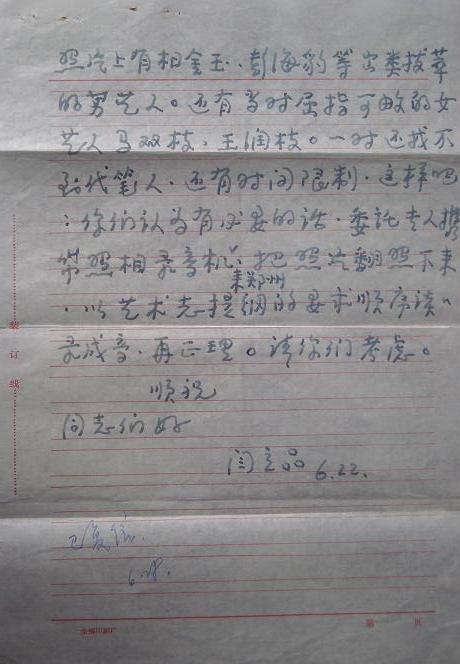 照片上有相金玉、彭海豹等出类拔萃
的男艺人。还有当时屈指可数的女
艺人马双枝、王润枝。一时还找不
到代笔人，还有时间限制，这样吧
：你们认为有必要的话，委託专人携
带照相录音机，把照片翻照下来
来郑州
，以艺术志提纲的要求顺序谈、
录成音，再正理。请你们考虑。
顺祝
同志们好
闫立品 6.22.
已复信.
6.28.
装订线
第 页